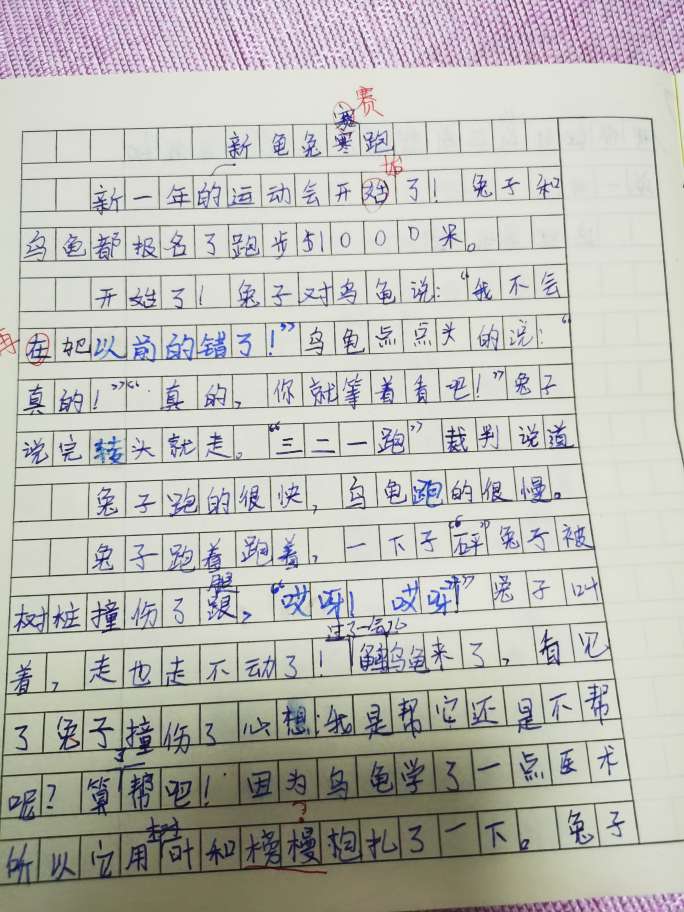 赛
新龟兔寒跑
始
新一年的运动会开始了！兔子和
乌龟都报名了跑步51000米。
开始了！兔子对乌龟说：“我不会
再
在把以前的错了！”乌龟点点头的说：“
真的！”“真的，你就等着看吧！”兔子
说完转头就走。“三二一跑”裁判说道
兔子跑的很快，乌龟跑的很慢。
兔子跑着跑着，一下子“砰”兔子被
腿
树桩撞伤了跟，“哎呀！哎呀！”兔子叫
过了一会儿
着，走也走不动了！乌龟来了，看见
了兔子撞伤了心想：我是帮它还是不帮
了
呢？算帮吧！因为乌龟学了一点医术
树 ？
所以它用叶和包扎了一下。兔子